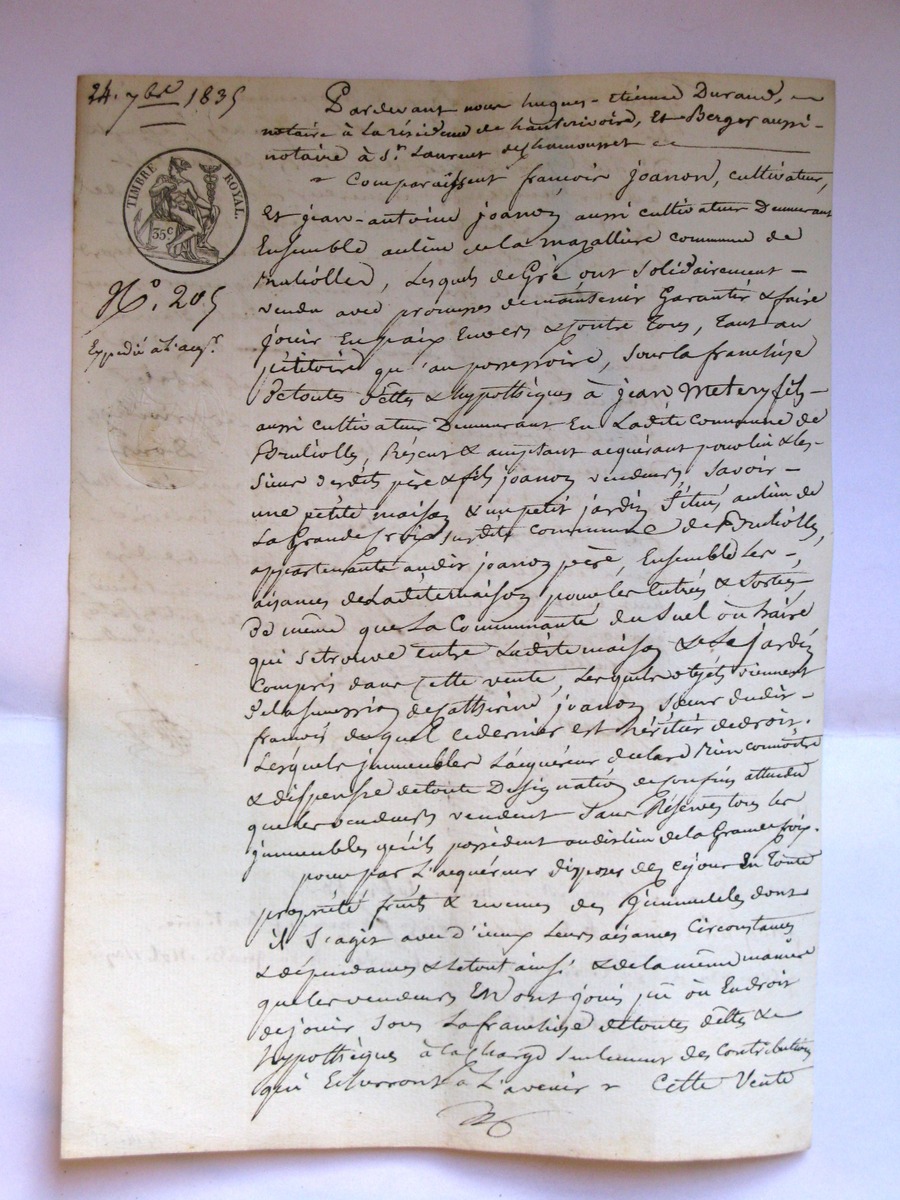 24. 7bre 1835
TIMBRE ROYAL.
35c
No. 205
Expédié à l'acqr.
Pardevant nous hugues-étienne Durand,
notaire à la résidence de hauterivoire, et Berger aussi
notaire à St. Laurent de chamousset
Comparaissent francois joanon, cultivateur,
et jean-antoine joanon aussi cultivateur demeurant
Ensemble au lieu de la mazallière commune de
Brulioles, Lesquels de Gré ont solidairement
vendu avec promesse de maintenir Garantir & faire
jouir En paix Envers & contre tous, tant au
pétitoire qu'au possessoire, sous la franchise
de toutes dettes & hypothèques à jean Metery fils
aussi cultivateur Demeurant En Ladite commune de
Brulioles, Présent & acceptant acquérant pour lui & les
siens desdits père & fils joanon vendeurs, savoir
une petite maison & un petit jardin situés au lieu de
La Grande Croix susdite commune de Brulioles,
appartenante audit joanon père, Ensemble les
aisances de Ladite maison pour les Entrées & sorties,
De même que La Communauté du Suel ou haire
qui se trouve entre Ladite maison & Le jardin
Compris dans cette vente, Lesquels objets viennent
de la succession de catherine joanon sœur dudit
francois duquel ce dernier est héritier de droit.
Lesquels jmmeubles L'acquéreur déclare Bien connoître
& dispense de toute Désignation de confins attendu
que les vendeurs vendent sans Réserves tous les
jmmeubles qu'ils possèdent audit lieu de la Grande Croix.
pour par L'acquéreur disposer dès ce jour En toute
propriété fruits & revenus des jmmeubles dont
il s'agit avec d'iceux Leurs aisances Circonstances
& dépendances & le tout ainsi & de la même manière
que les vendeurs EN ont joui pû ou En droit
de jouir sous La franchise de toutes dettes &
hypothèques à la charge seulement des contributions
qui Echerront à L'avenir Cette vente